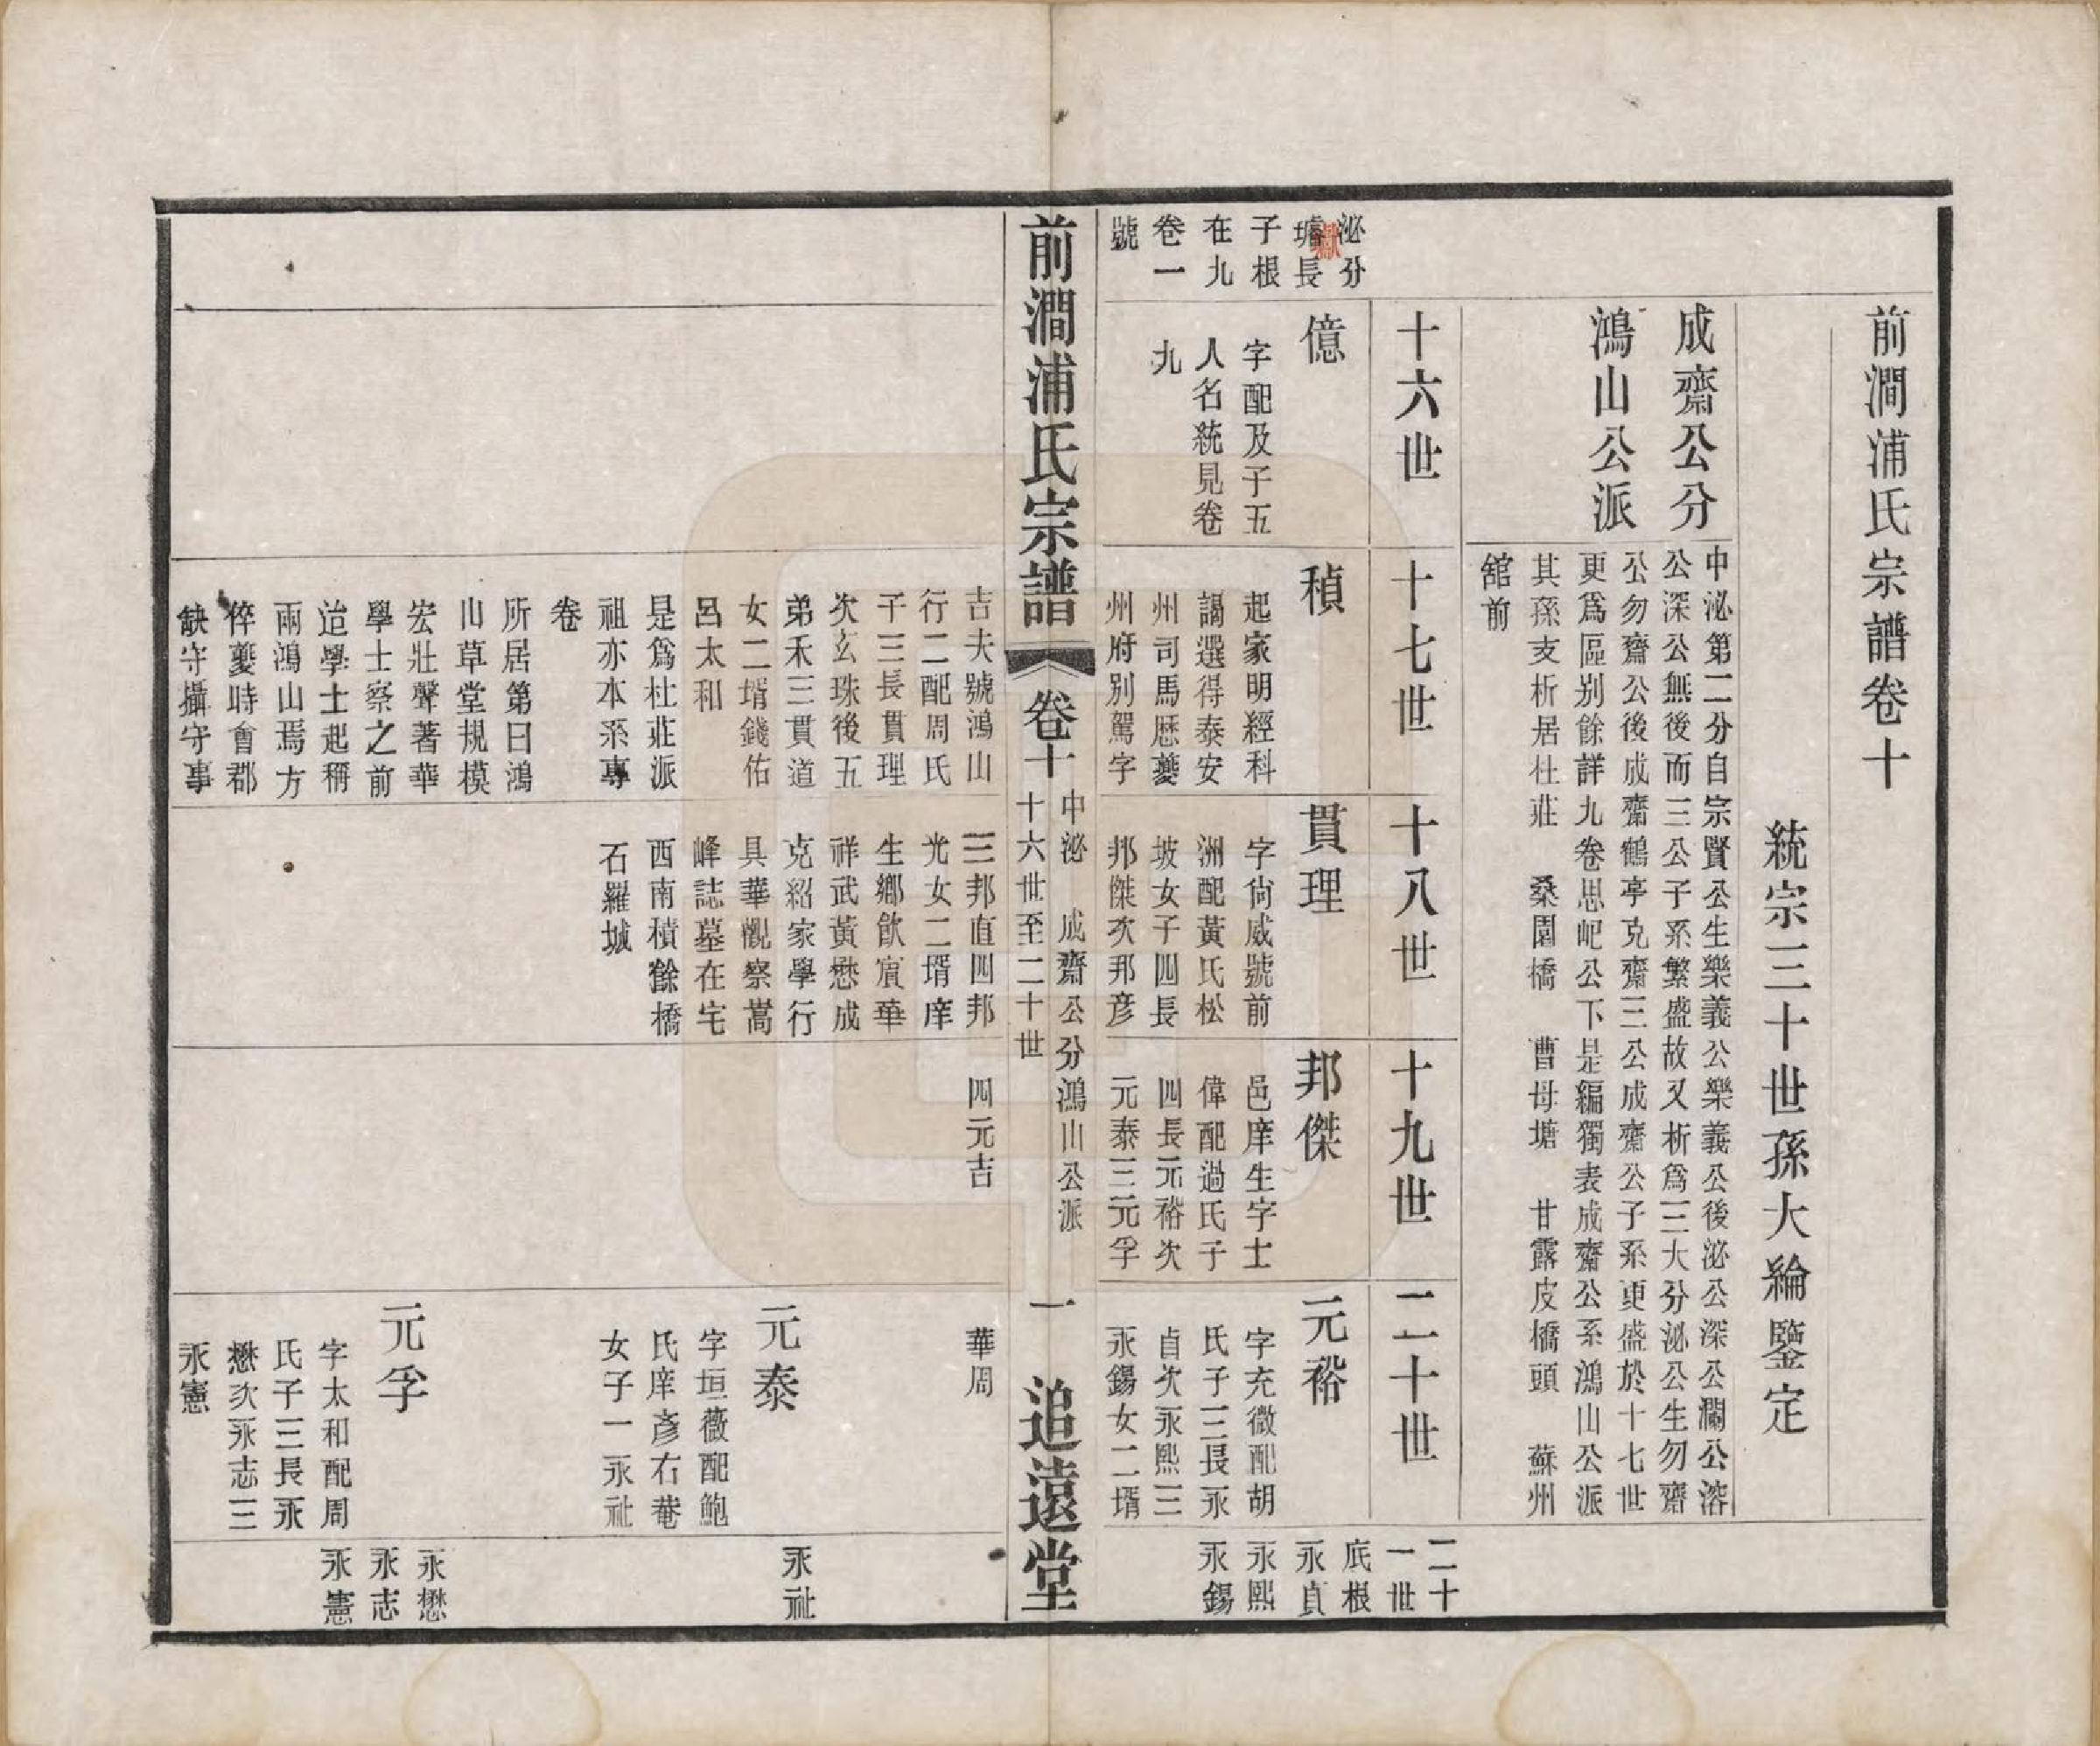 前澗浦氏宗譜卷十
統宗三十世孫大綸鑒定
成齋公分
鴻山公派
中泌第二分自宗賢公生樂義公樂義公後泌公深公瀾公溶
公深公無後而三公子系繁盛故又析爲三大分泌公生勿齋
公勿齋公後成齋鶴亭克齋三公成齋公子系更盛於十七世
更爲區別餘詳九卷思屺公下是編獨表成齋公系鴻山公派
其孫支析居杜莊 桑園橋 曹母塘 甘露皮橋頭 蘇州
舘前
十六世
十七世
十八世
十九世
二十世
二十
一世
底根
永貞
永熙
永錫
泌分
塘長
子根
在九
卷一
號
億
字配及子五
人名統見卷
九
稹
起家明經科
謁選得泰安
州司馬歷夔
州府別駕字
貫理
字尙威號前
洲配黃氏松
坡女子四長
邦傑次邦彦
邦傑
邑庠生字士
偉配過氏子
四長元裕次
元泰三元孚
元裕
字充微配胡
氏子三長永
貞次永熙三
永錫女二壻
前澗浦氏宗譜
卷十
中泌 成齋公分鴻山公派
十六世至二十世
一
追遠堂
吉夫號鴻山
行二配周氏
子三長貫理
次玄珠後五
弟禾三貫道
女二壻錢佑
呂太和
是爲杜莊派
祖亦本系專
卷
所居第曰鴻
山草堂規模
宏壯聲著華
學士察之前
造學士起稱
兩鴻山焉方
倅夔時會郡
缺守攝守事
三邦直四邦
光女二壻庠
生鄉飮賓華
祥武黃懋成
克紹家學行
具華觀察嵩
峰誌墓在宅
西南積餘橋
石羅城
四元吉
華周
元泰
字垣薇配鮑
氏庠彥右菴
女子一永祉
元孚
字太和配周
氏子三長永
懋次永志三
永憲
永祉
永懋
永志
永憲